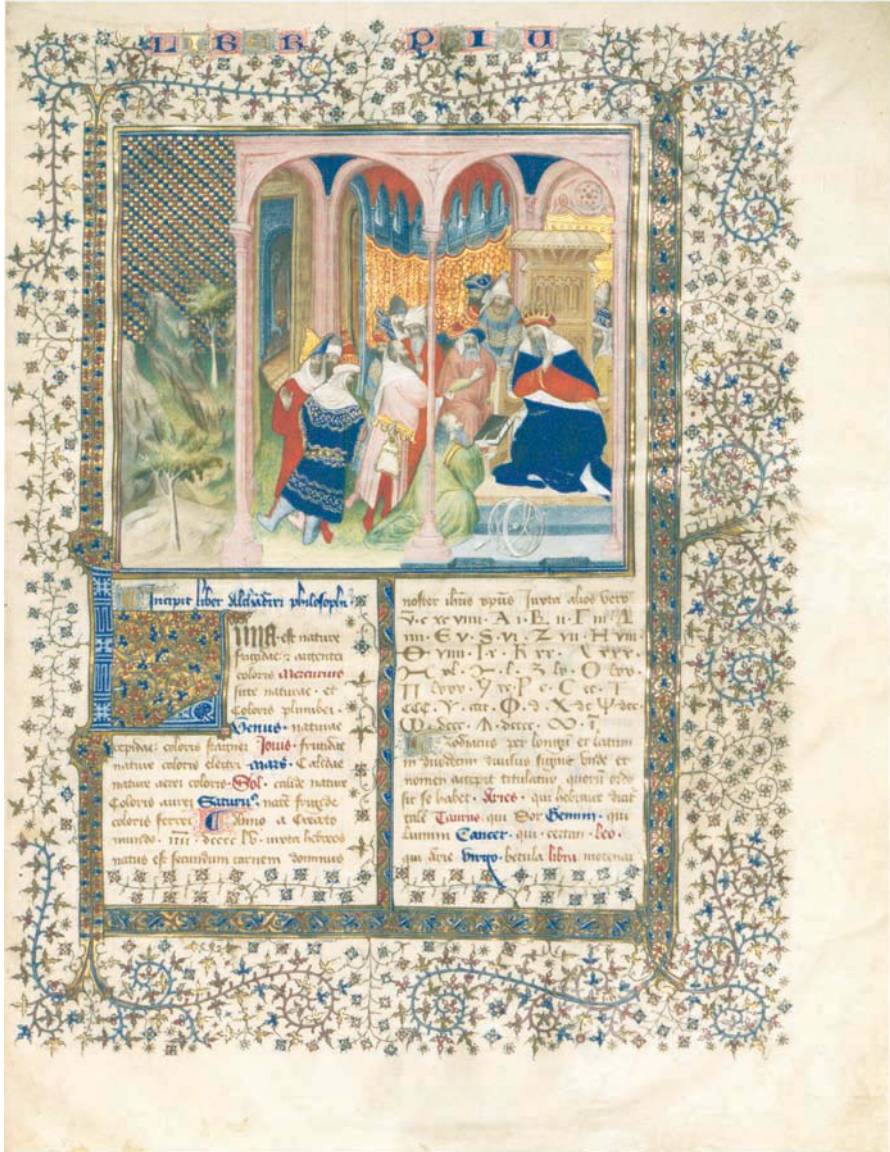 LIBER PRIMUS
Incipit liber Alchandrei philosophi
luna est nature
frigidae & argentei
coloris Mercurius
naturae · et
Coloris plumbei ·
Venus · naturae
tepidae coloris stagnei Jovis · frigidae
nature coloris electri mars · Calidae
nature aerei coloris · Sol · calide nature
Coloris aurei Saturnꝰ · nature frigide
coloris ferrei Anno a Creato
mundo · iiii · dcccc lv · iuxta hebreos
natus est secundum carnem dominus
noster ihus xpus Juxta alios vero
v · c xc viiii · A i · B ii · Γ iii · Δ
iiii · E v · S vi · Z vii · H viii ·
Θ viiii · I x · K xx · Λ xxx ·
xl · l · lx · O lxx ·
Π lxxx · xc · P c · C cc · T
ccc · Y · cccc · Φ · d · X dc Ψ dcc
ω · dccc
Zodiacus per longum et latum
in duodecim signis unde et
nomen accepit titulatur quorum ordo
sic se habet · Aries · qui hebraice dicitur
tale Taurus qui Sor Gemini · qui
Cancer · qui · certan · leo ·
qui Arie Virgo · betula libra